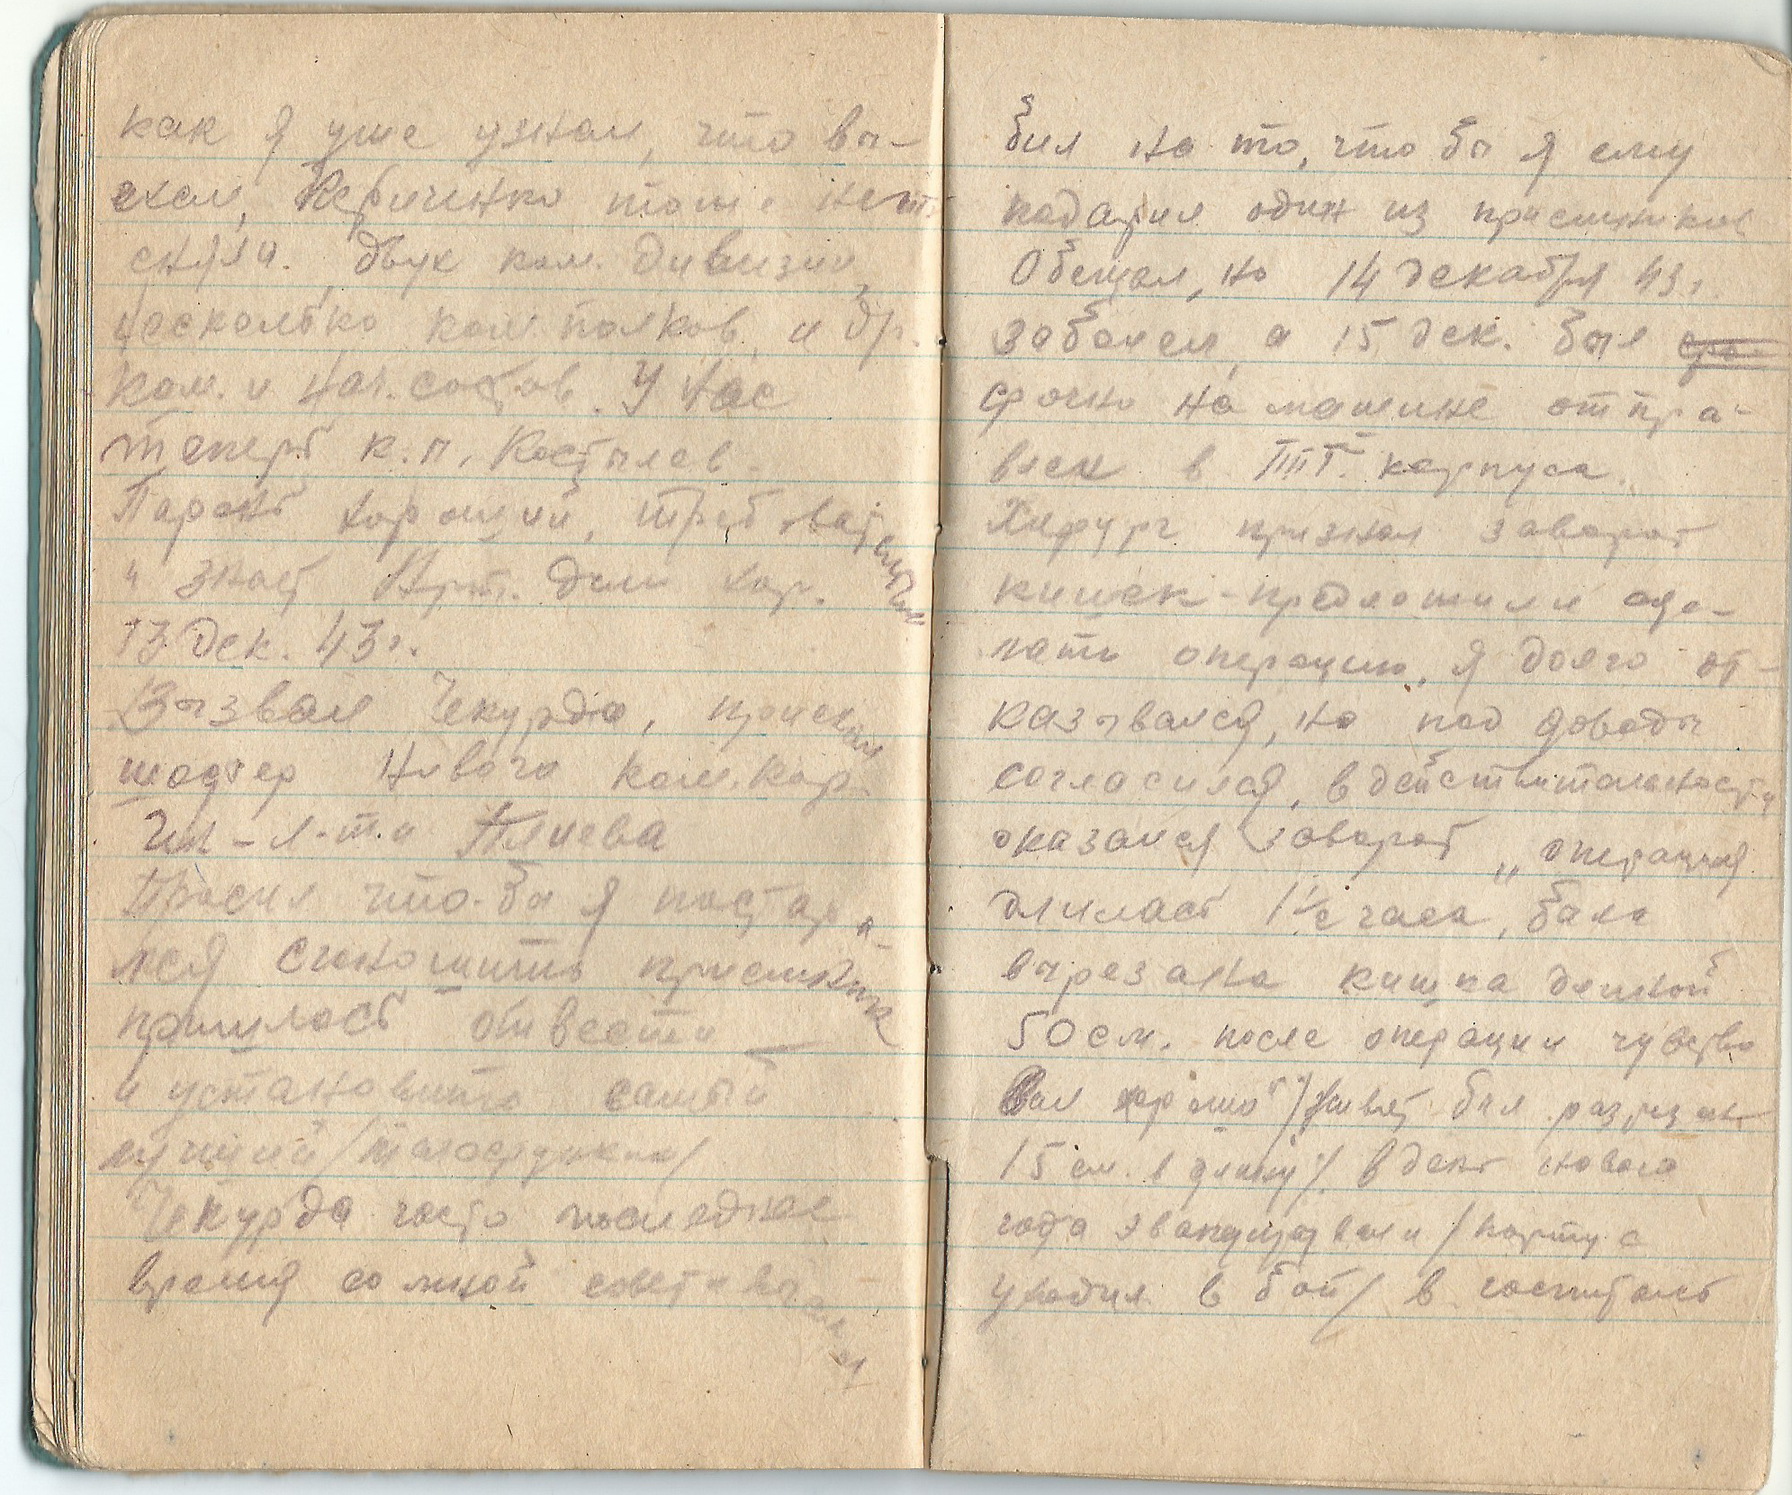 как я уже узнал, что вы-
ехал, тоже нет
сняли. двух ком. дивизии,
несколько ком. полков, и др.
ком. и нач. состав. У нас
теперь к.п. Костылев.
Парень хороший, требовательный
и знает Арт. дело хор.
13 дек. 43 г.
Вызвал Чекурда, приехал
шофер нового ком. кор.
Ген-л-т.а Плиева
Просил что-бы я постара-
лся сэкономить приемник
пришлось отвести
и установить самый
лучший /
Чекурда часто последнее
время со мной советовался
бил на то, что бы я ему
подарил один из приемников
Обещал, но 14 декабря 43 г.
заболел, а 15 дек. был
срочно на машине отпра-
влен в ППГ. корпуса.
Хирург признал заворот
кишек - предложили сде-
лать операцию, я долго от-
казывался, но под доводы
согласился, в действительности
оказался заворот, операция
длилась 1 1/2 часа, была
вырезана кишка длиной
50 см. после операции чувство
вал хорошо /живот был разрезан
15 см. в длину/. В день нового
года эвакуировали /корпус
уходил в бой/ в госпиталь